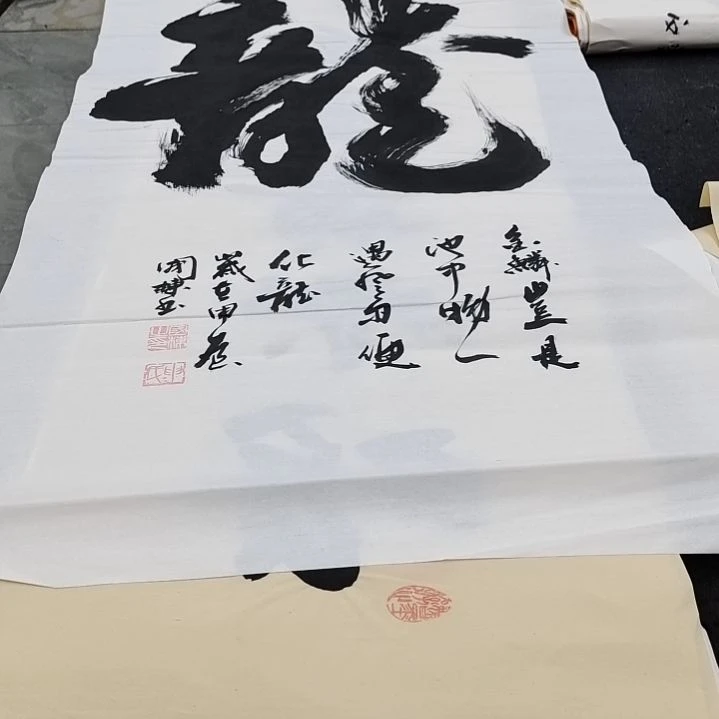 龍
金鳞豈是
池中物一
遇風雨便
化龍
歲在甲辰